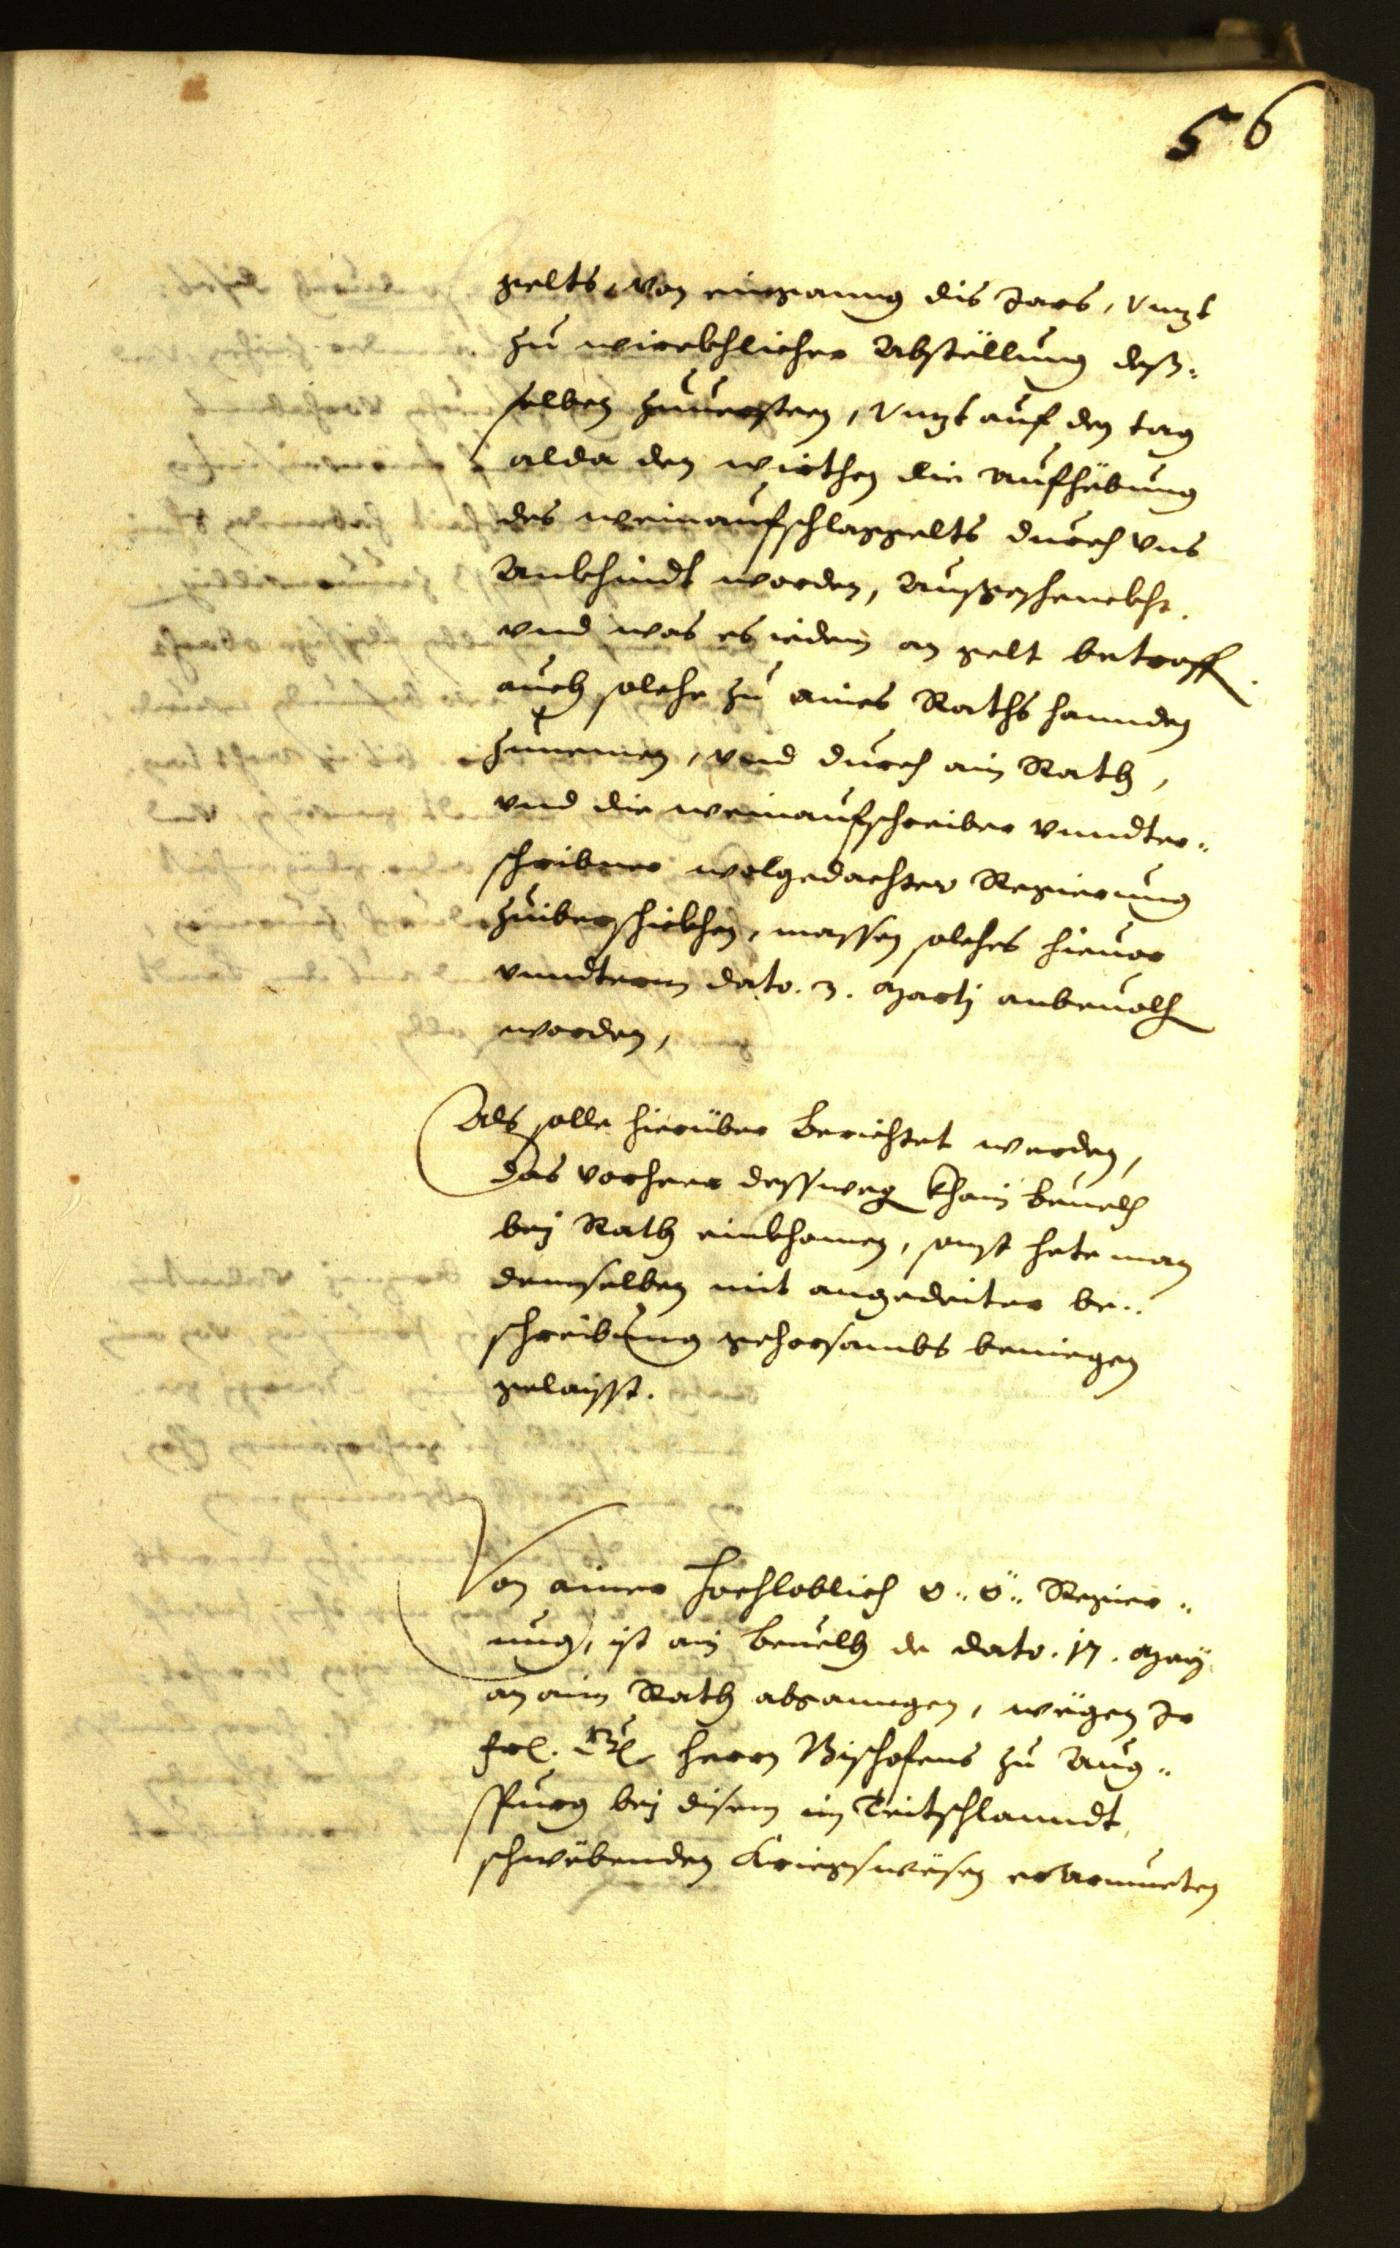 56
gelts, von einganng dis Jars, vnzt
zu wirckhlicher Abstöllung deß„
selben zuuersteen, vnzt auf den tag
alda den wirthen die Aufhöbung
des weinaufschlaggelts durch vns
Ankhindt worden, Außgeschenckht.
vnd was es iedem an gelt betroff.
auch solche zu aines Raths hannden
zunemen, vnd durch ain Rath,
vnd die weinaufschreiber vnndter„
schribner wolgedachter Regierung
zuiberschickhen, massen solches hieuor
vnndterm dato. 3. Martj anbeuolh
worden,
Als solle hierüber Berichtet werden,
das vorheer dessweg khain beuelh
bej Rath einkhomen, sonst hete man
demselben mit angedeiter be„
schreibung gehorsambs beniegen
gelaisst.
Von ainer hochloblich o: ö: Regier„
ung, ist ain beuelh de dato. 17. May
an ain Rath abganngen, wögen Ir
frl. herrn Bischofens zu Aug„
spurg bej disem im Teitschlanndt
schwöbenden Kriegswösen erarmeten